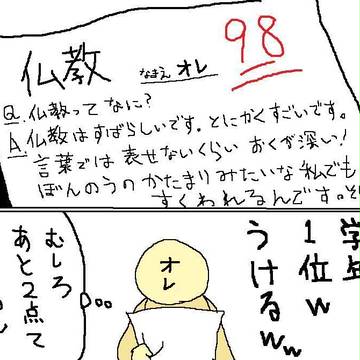 仏教
なまえ オレ
98
Q. 仏教って なに?
A. 仏教は すばらしいです。とにかくすごいです。
言葉では 表せないくらい おくが深い!
ぼんのうの かたまり みたいな 私でも
すくわれるんです。そ
学年
1位w
うけるww
オレ
むしろ
あと2点て